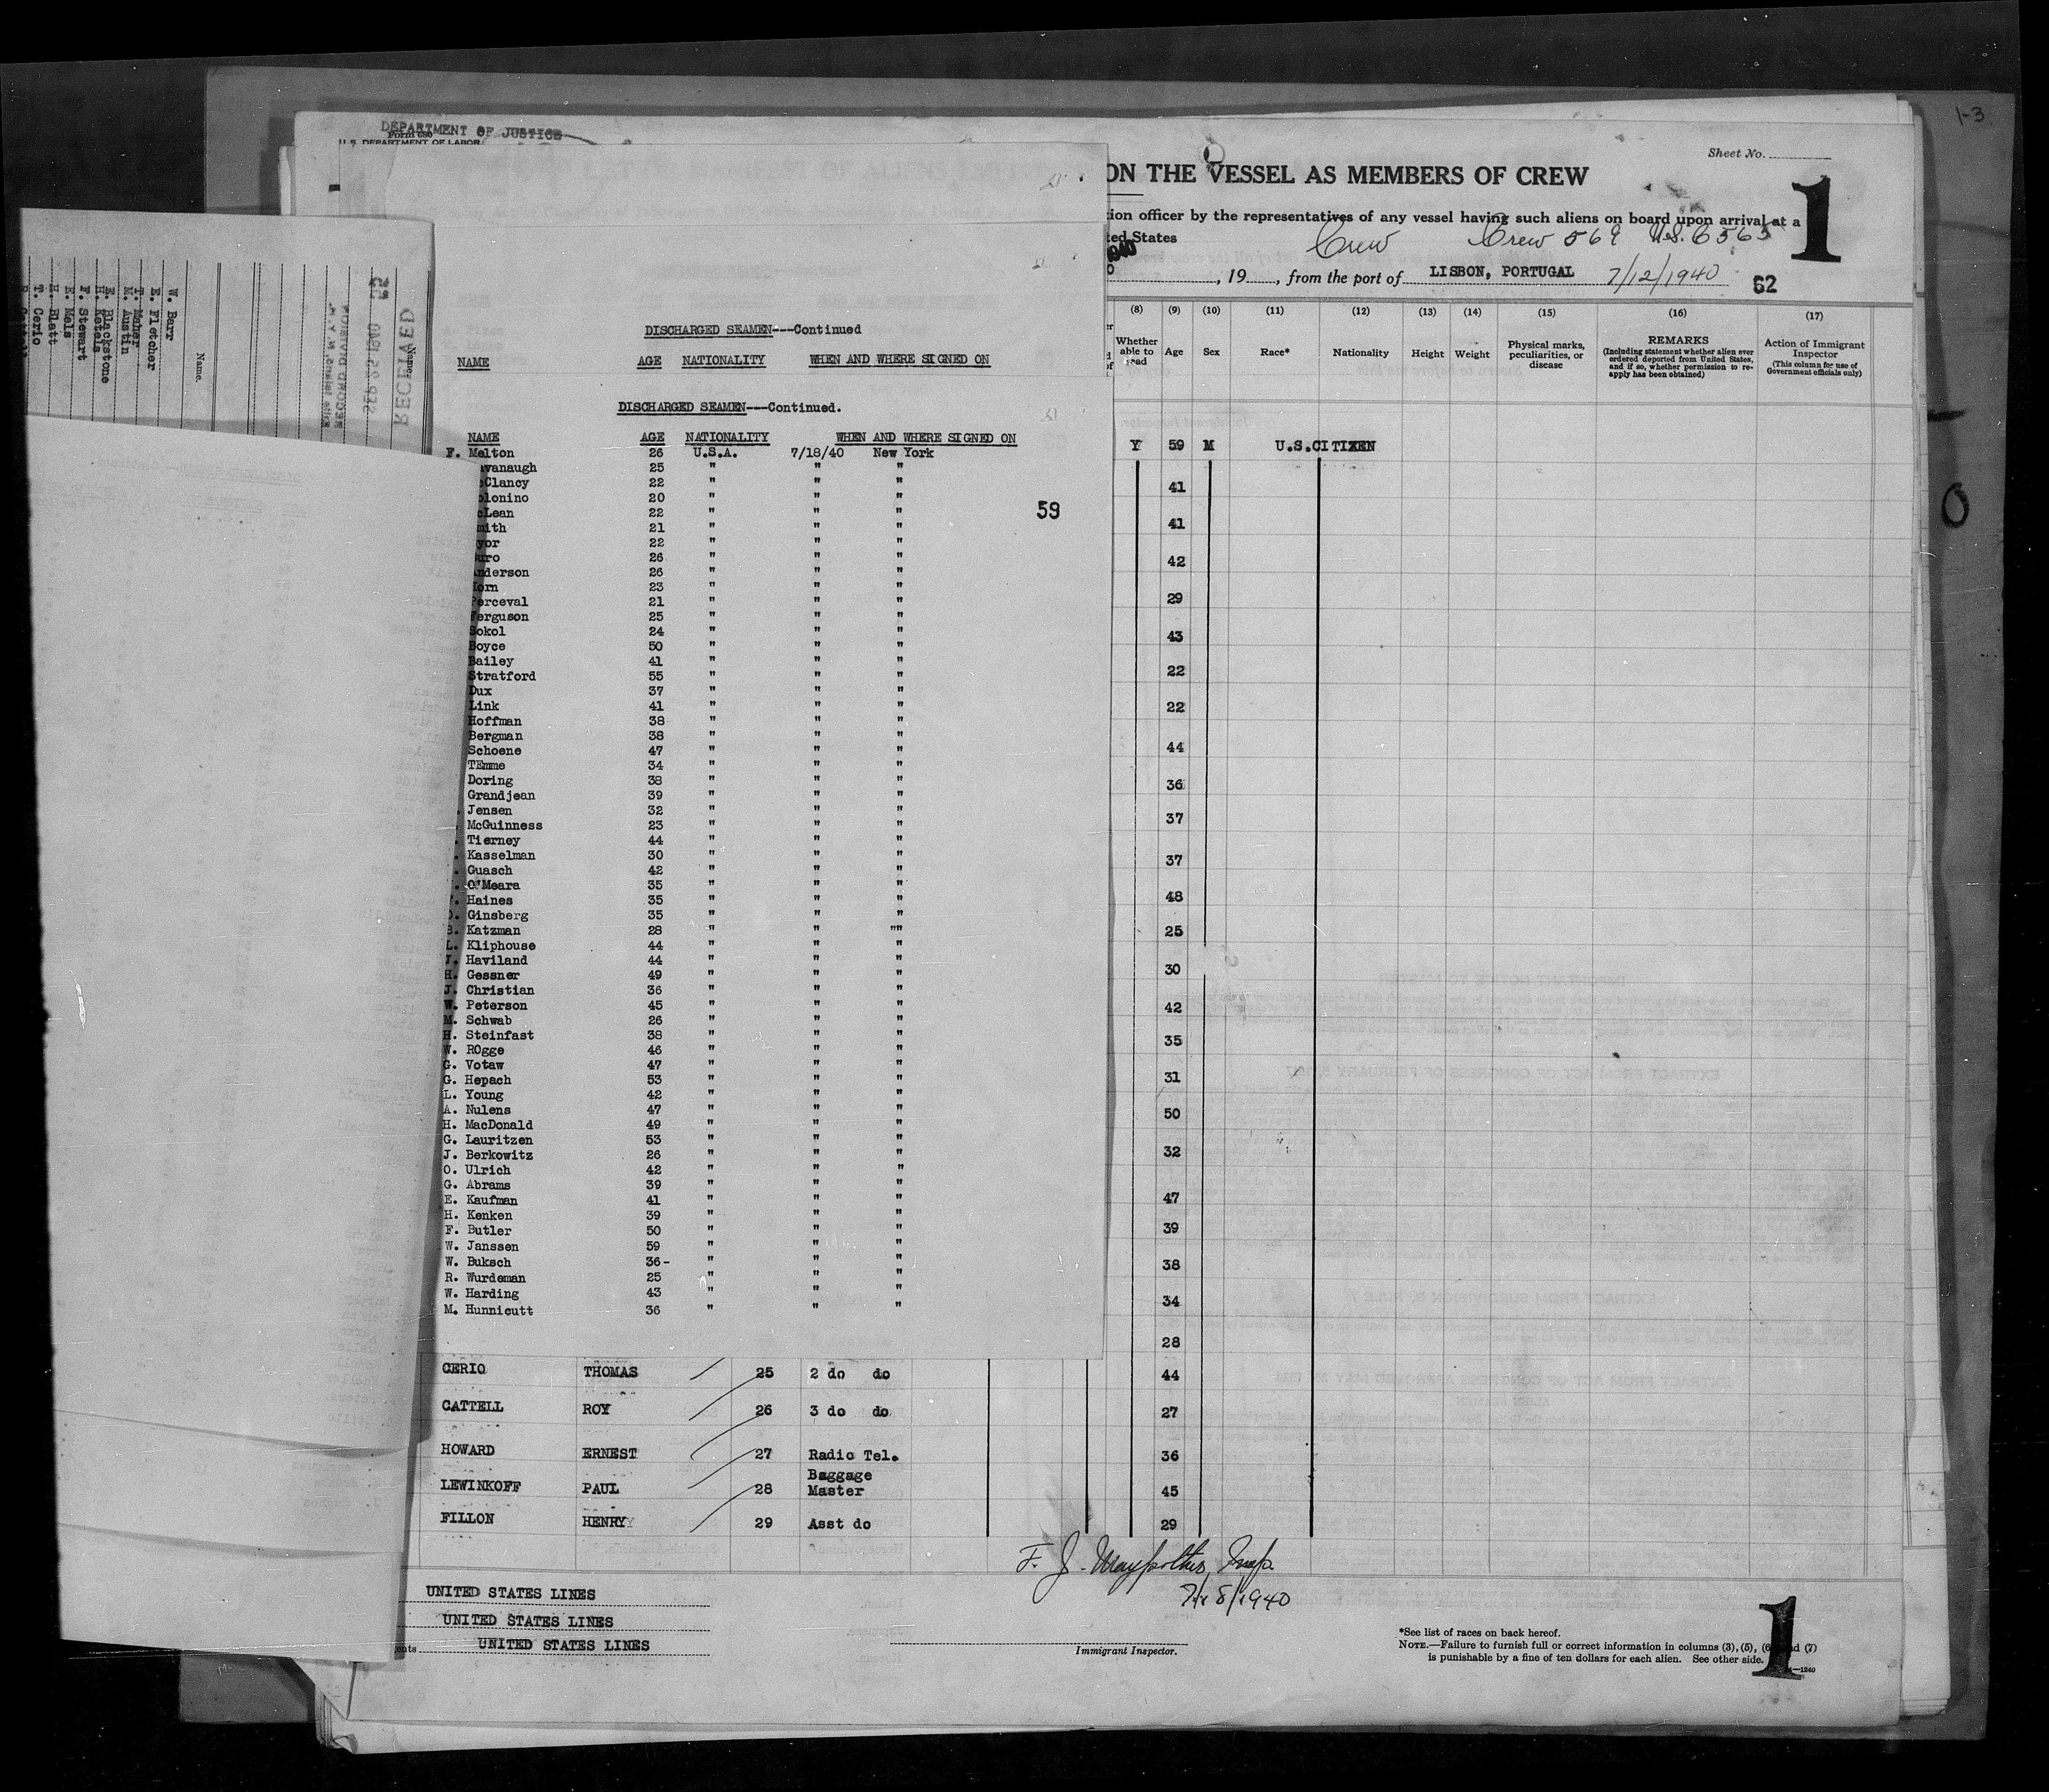 DEPARTMENT OF JUSTICE
Form 680
U. S. DEPARTMENT OF LABOR
1-3
Sheet No.
ON THE VESSEL AS MEMBERS OF CREW
1
tion officer by the representatives of any vessel having such aliens on board upon arrival at a
ted States
Crew Crew 569 U.S. 6565
, 19 , from the port of LISBON, PORTUGAL 7/12/1940
62
(8) (9) (10) (11) (12) (13) (14) (15) (16) (17)
Whether able to read
Age
Sex
Race*
Nationality
Height
Weight
Physical marks, peculiarities, or disease
REMARKS
(Including statement whether alien ever ordered deported from United States, and if so, whether permission to reapply has been obtained)
Action of Immigrant Inspector
(This column for use of Government officials only)
Y 59 M U.S.CITIZEN
41
41
42
29
43
22
22
44
36
37
37
48
25
30
42
35
31
50
32
47
39
38
34
28
44
27
36
45
29
RECEIVED
RECORD DIVISION
Name.
W. Barr
E. Fletcher
T. Maher
M. Austin
E. Blackstone
H. Ketels
F. Stewart
E. Mels
H. Blatt
T. Cerio
DISCHARGED SEAMEN---Continued
NAME AGE NATIONALITY WHEN AND WHERE SIGNED ON
DISCHARGED SEAMEN---Continued.
NAME AGE NATIONALITY WHEN AND WHERE SIGNED ON
F. Melton 26 U.S.A. 7/18/40 New York
vanaugh 25 " " "
Clancy 22 " " "
lonino 20 " " "
cLean 22 " " "
59
mith 21 " " "
yor 22 " " "
uro 26 " " "
nderson 26 " " "
Horn 23 " " "
Perceval 21 " " "
Ferguson 25 " " "
Sokol 24 " " "
Boyce 50 " " "
Bailey 41 " " "
Stratford 55 " " "
Dux 37 " " "
Link 41 " " "
Hoffman 38 " " "
Bergman 38 " " "
Schoene 47 " " "
TEmme 34 " " "
Doring 38 " " "
Grandjean 39 " " "
Jensen 32 " " "
McGuinness 23 " " "
Tierney 44 " " "
Kasselman 30 " " "
Guasch 42 " " "
O'Meara 35 " " "
Haines 35 " " "
Ginsberg 35 " " "
Katzman 28 " " ""
L. Kliphouse 44 " " "
J. Haviland 44 " " "
H. Gessner 49 " " "
J. Christian 36 " " "
W. Peterson 45 " " "
M. Schwab 26 " " "
H. Steinfast 38 " " "
W. ROgge 46 " " "
G. Votaw 47 " " "
G. Hepach 53 " " "
L. Young 42 " " "
A. Nulens 47 " " "
H. MacDonald 49 " " "
G. Lauritzen 53 " " "
J. Berkowitz 26 " " "
O. Ulrich 42 " " "
G. Abrams 39 " " "
E. Kaufman 41 " " "
H. Kenken 39 " " "
F. Butler 50 " " "
W. Janssen 59 " " "
W. Buksch 36- " " "
R. Wurdeman 25 " " "
W. Harding 43 " " "
M. Hunnicutt 36 " " "
CERIO THOMAS 25 2 do do
CATTELL ROY 26 3 do do
HOWARD ERNEST 27 Radio Tel.
LEWINKOFF PAUL 28 Baggage Master
FILLON HENRY 29 Asst do
F. J. Insp.
7/18/1940
UNITED STATES LINES
UNITED STATES LINES
ents UNITED STATES LINES
Immigrant Inspector.
*See list of races on back hereof.
NOTE.—Failure to furnish full or correct information in columns (3), (5), (6) and (7)
is punishable by a fine of ten dollars for each alien. See other side.
1
—1240